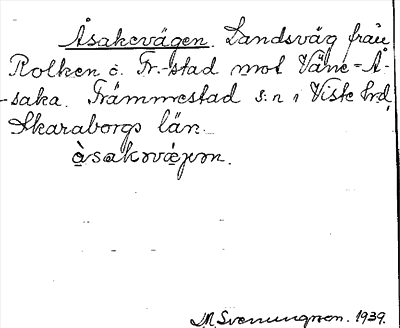 Åsakevägen. Landsväg från
Rolken i Fr.-stad mot Väne-Å-
-saka. Främmestad s:n i Viste hrd,
Skaraborgs län.
M. Svenungsson. 1939.